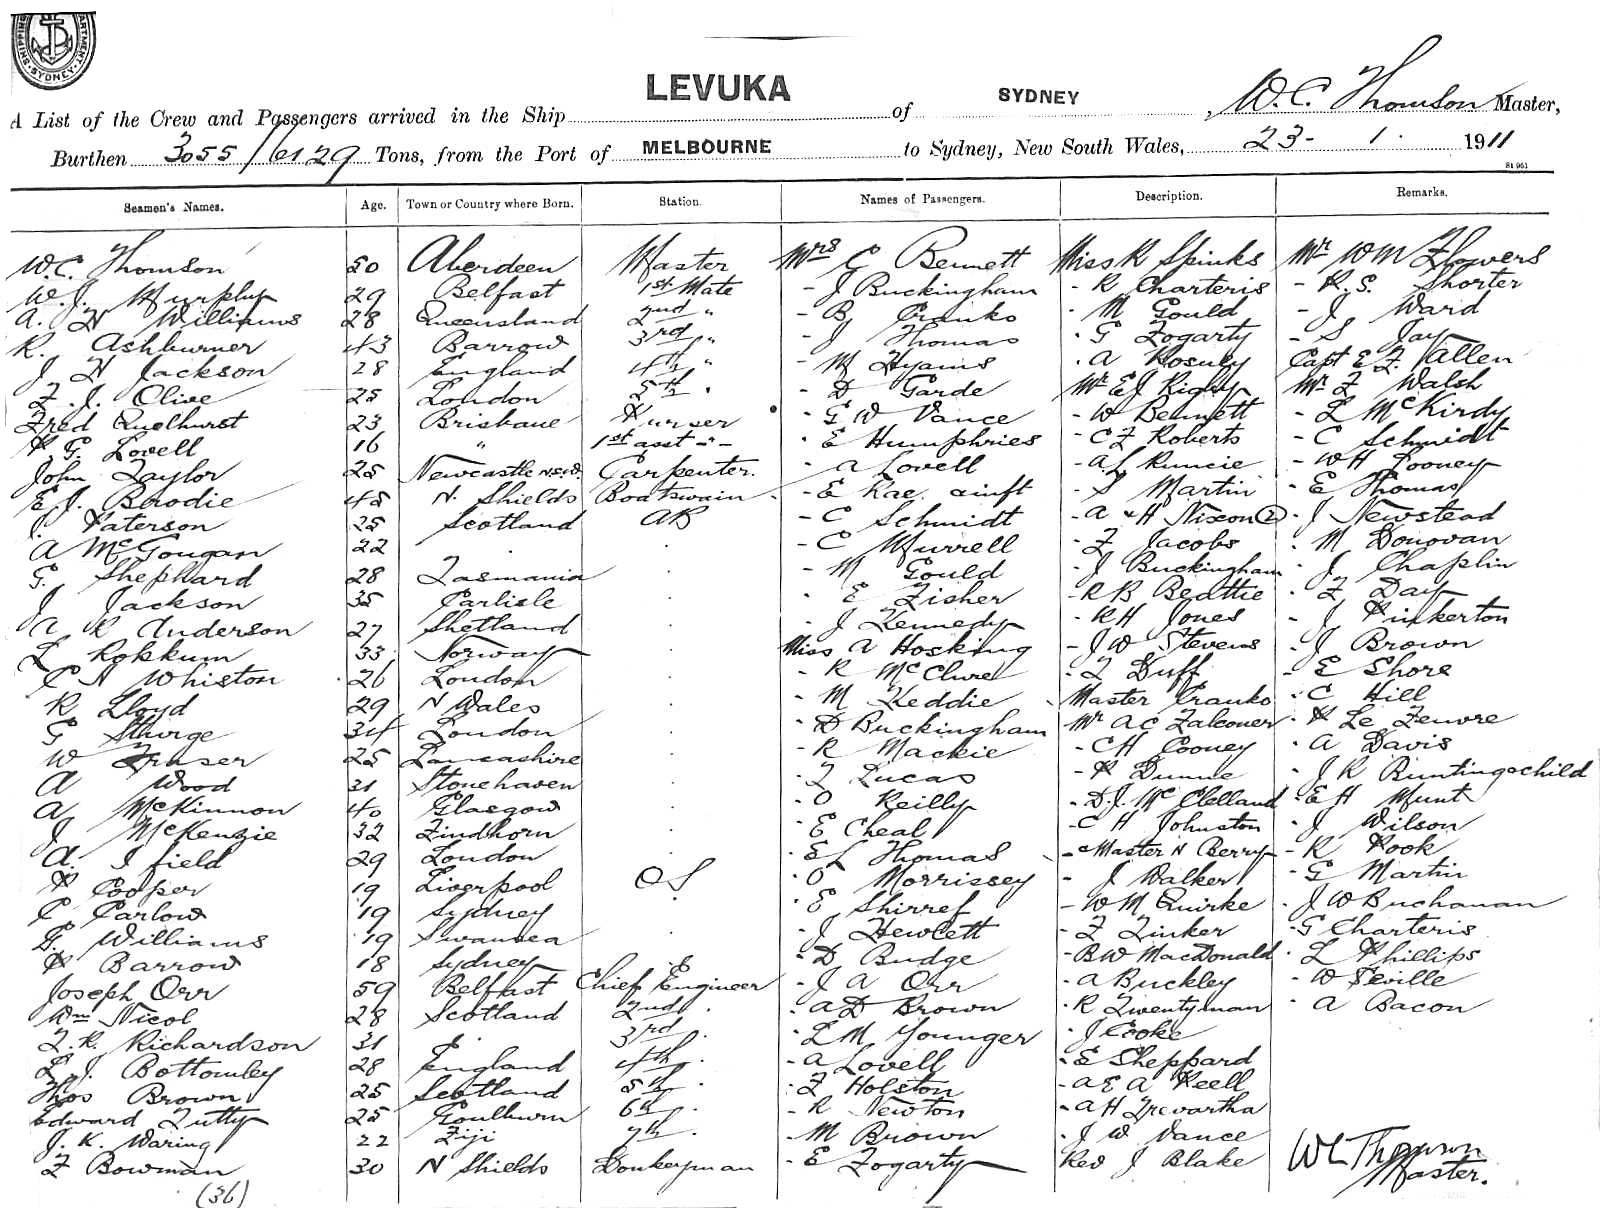 SYDNEY
LEVUKA SYDNEY
A List of the Crew and Passengers arrived in the Ship of , W. C. Thomson Master,
Burthen 3055/6129 Tons, from the Port of MELBOURNE to Sydney, New South Wales, 23- 1. 1911
Seamen's Names. Age. Town or Country where Born. Station. Names of Passengers. Description. Remarks.
W. C. Thomson 50 Aberdeen Master Mrs C Bennett Miss R Spinks Mr WM Flowers
W. J. Murphy 29 Belfast 1st Mate - J Buckingham - R Charteris - R. S. Shorter
A. H Williams 28 Queensland 2nd " - B Cranko - M Gould - J Ward
R. Ashburner 43 Barrow 3rd " - J Thomas - G Fogarty - S Jay
J H Jackson 28 England 4th " - M Hyams - A Capt E F Allen
F. J. Olive 25 London 5th " - D Garde Mr E J Rigby Mr F Walsh
Fred 23 Brisbane Purser - G W Vance - W Bennett - L McKirdy
H G. Lovell 16 " 1st asst - " - - E Humphries - C F Roberts - C Schmidt
John Taylor 25 Newcastle N.S.W. Carpenter. - A Lovell - A. L Runcie - W H Looney
E J. Brodie 45 N. Shields Boatswain - E Rae - S Martin - E Thomas
J. Paterson 25 Scotland AB - C Schmidt - A & H Nixon (2) - J Newstead
A McGougan 22 " - C Murrell - F Jacobs - M Donovan
G. Shephard 28 Tasmania - M Gould - J Buckingham - J Chaplin
J Jackson 35 Carlisle - E Fisher - R B Beattie - F Day
A R Anderson 27 Shetland - J Kennedy - R H Jones - J Pinkerton
L Rokkum 33 Norway Miss A Hosking - J W Stevens - J Brown
C H Whiston 26 London - R McClure - F Duff - E Shore
R Lloyd 29 N Wales - M Keddie Master Cranko - C Hill
G Sturge 34 London - D Buckingham Mr A C Falconer - H Le Feuvre
W Fraser 25 Lancashire - R Mackie - C H Cooney - A Davis
A Wood 31 Stonehaven - F Lucas - H Dunne - J R Bunting & child
A McKinnon 40 Glasgow - O Reilly - D. J. McClelland - E H Munt
J McKenzie 32 Findhorn - E Cheal - C H Johnston - J Wilson
A. Ifield 29 London - E L Thomas - Master N Berry - R Hook
H Cooper 19 Liverpool OS - O Morrissey - J Walker - G Martin
C Carlow 19 Sydney - E Shirref - W M Quirke - J W Buchanan
G. Williams 19 Swansea - J Hewlett - F Tinker - G Charteris
H Barrow 18 Sydney - D Budge - B W MacDonald - L Phillips
Joseph Orr 59 Belfast Chief Engineer - J A Orr - A Buckley - W Seville
Wm Nicol 28 Scotland 2nd " - A D Brown - R Twentyman - A Bacon
F. R. Richardson 31 " 3rd " - L M Younger - J Cooke
L J. Bottomley 28 England 4th " - A Lovell - E Sheppard
Thos Brown 25 Scotland 5th " - F Holston - A E A Keell
Edward Tutty 25 Goulburn 6th " - R Newton - A H Trevartha
J. K. Waring 22 Fiji 7th " - M Brown - J W Vance
F Bowman 30 N Shields Donkeyman - E Fogarty Rev J Blake WC Thomson
Master.
(36)